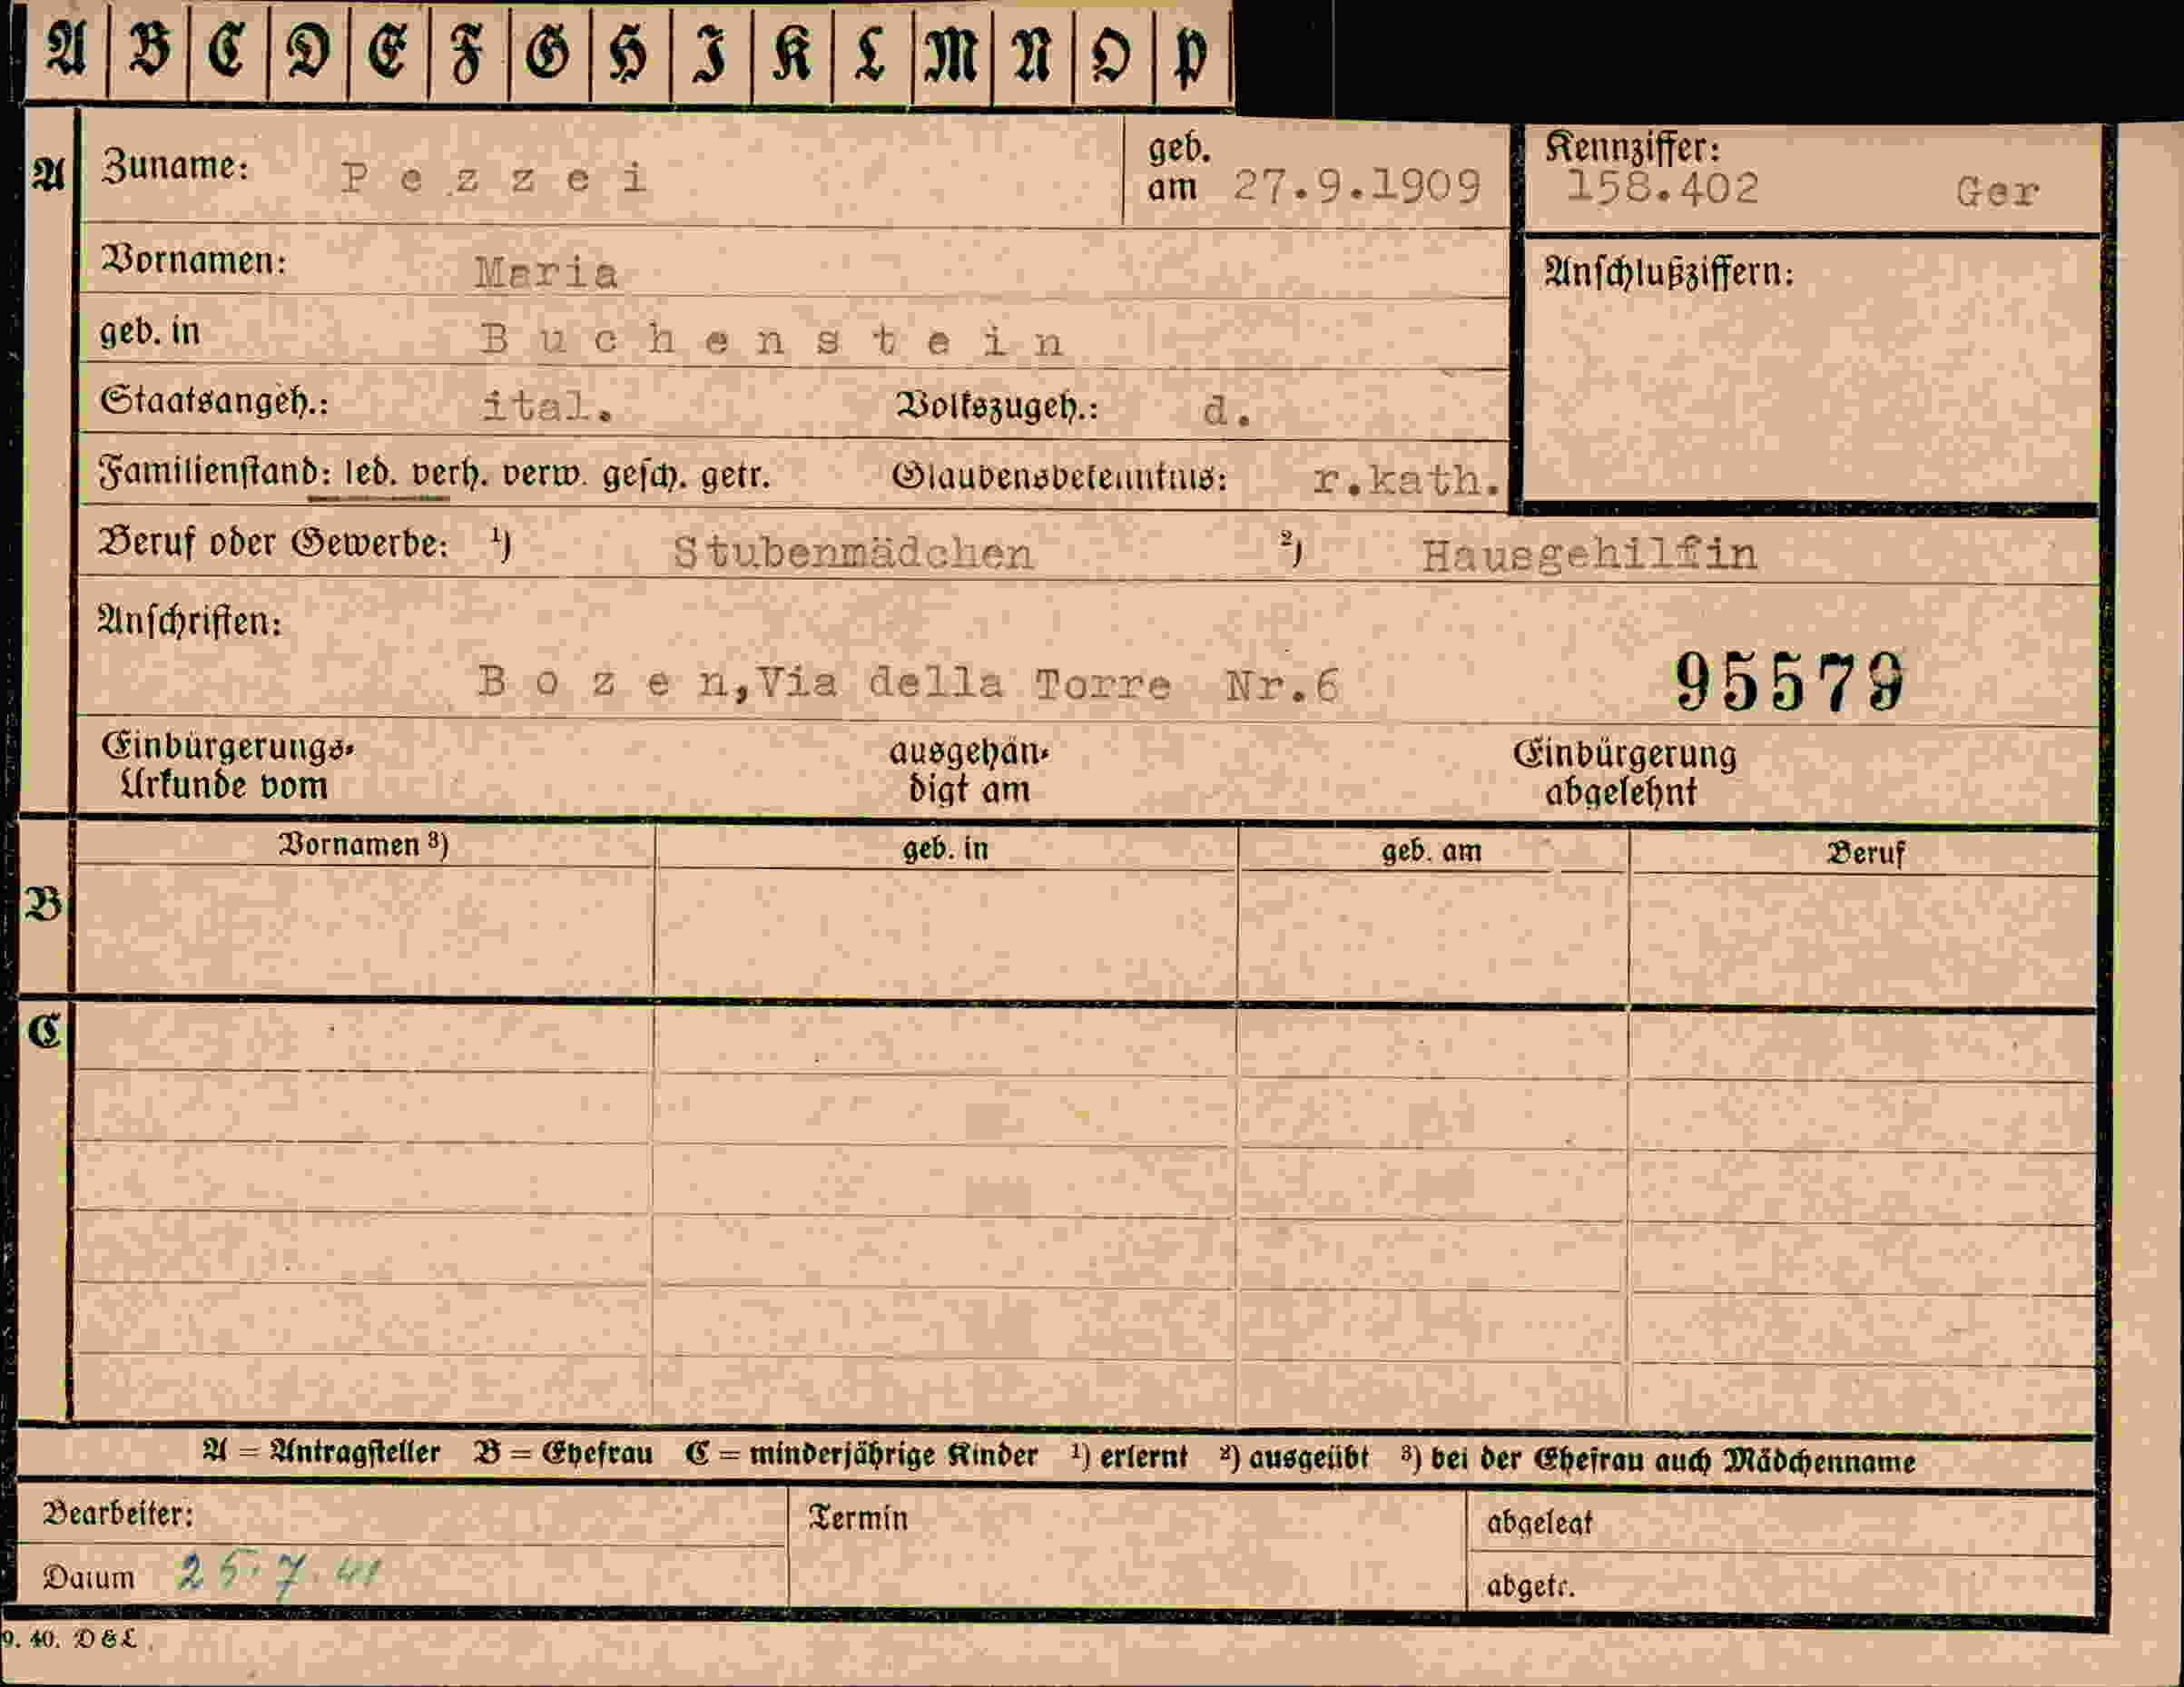 A B C D E F G H I K L M N O P
A Zuname: Pezzei geb. am 27.9.1909 Kennziffer: 158.402 Ger
Vornamen: Maria Anschlußziffern:
geb. in Buchenstein
Staatsangeh.: ital. Volkszugeh.: d.
Familienstand: led. verh. verw. gesch. getr. Glaubensbekenntnis: r.kath.
Beruf oder Gewerbe: ¹) Stubenmädchen ²) Hausgehilfin
Anschriften:
Bozen, Via della Torre Nr.6 95579
Einbürgerungs- ausgehän- Einbürgerung
Urkunde vom digt am abgelehnt
Vornamen ³) geb. in geb. am Beruf
B
C
A = Antragsteller B = Ehefrau C = minderjährige Kinder ¹) erlernt ²) ausgeübt ³) bei der Ehefrau auch Mädchenname
Bearbeiter: Termin abgelegt
Datum 25.7.41 abgetr.
9. 40. D & L